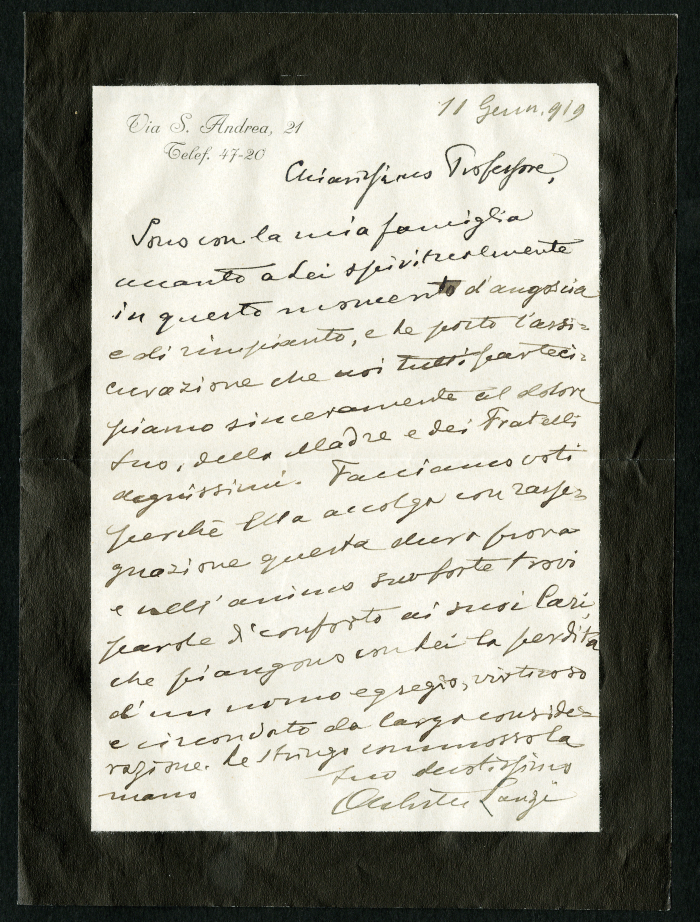 Via S. Andrea, 21
Telef. 47-20
11 Genn. 919
Chiarissimo Professore,
Sono con la mia famiglia
accanto a Lei spiritualmente
in questo momento d'angoscia
e di rimpianto, e Le porto l'assi=
curazione che noi tutti parteci=
piamo sinceramente al dolore
Suo, della Madre e dei Fratelli
degnissimi. Facciamo voti
perchè Ella accolga con rasse=
gnazione questa dura prova
e nell'animo suo forte trovi
parole di conforto ai suoi Cari,
che piangono con Lei la perdita
d'un uomo egregio, virtuoso
e circondato da larga conside=
razione. Le stringo commosso la
mano
Suo devotissimo